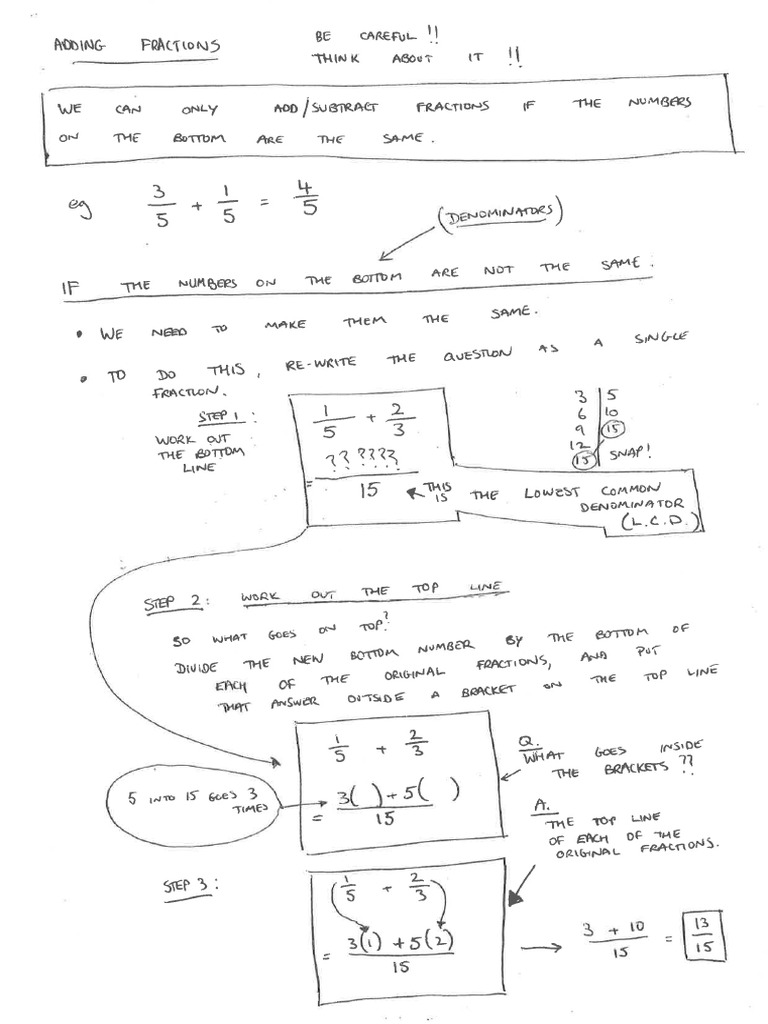 ADDING FRACTIONS
BE CAREFUL!!
THINK ABOUT IT!!
WE CAN ONLY ADD/SUBTRACT FRACTIONS IF THE NUMBERS
ON THE BOTTOM ARE THE SAME.
eg 3/5 + 1/5 = 4/5
(DENOMINATORS)
IF THE NUMBERS ON THE BOTTOM ARE NOT THE SAME.
• WE NEED TO MAKE THEM THE SAME.
• TO DO THIS, RE-WRITE THE QUESTION AS A SINGLE
FRACTION.
STEP 1:
WORK OUT
THE BOTTOM
LINE
1/5 + 2/3
= ?? ????/15
3 | 5
6 | 10
9 | 15
12
15
SNAP!
THIS IS THE LOWEST COMMON
DENOMINATOR
(L.C.D.)
STEP 2: WORK OUT THE TOP LINE
SO WHAT GOES ON TOP?
DIVIDE THE NEW BOTTOM NUMBER BY THE BOTTOM OF
EACH OF THE ORIGINAL FRACTIONS, AND PUT
THAT ANSWER OUTSIDE A BRACKET ON THE TOP LINE
1/5 + 2/3
= 3( ) + 5( )/15
5 INTO 15 GOES 3
TIMES
Q.
WHAT GOES INSIDE
THE BRACKETS??
A.
THE TOP LINE
OF EACH OF THE
ORIGINAL FRACTIONS.
STEP 3:
1/5 + 2/3
= 3(1) + 5(2)/15
3 + 10/15 = 13/15